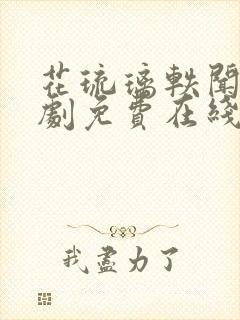 花琉璃軼聞
劇免費在綫
我盡力了